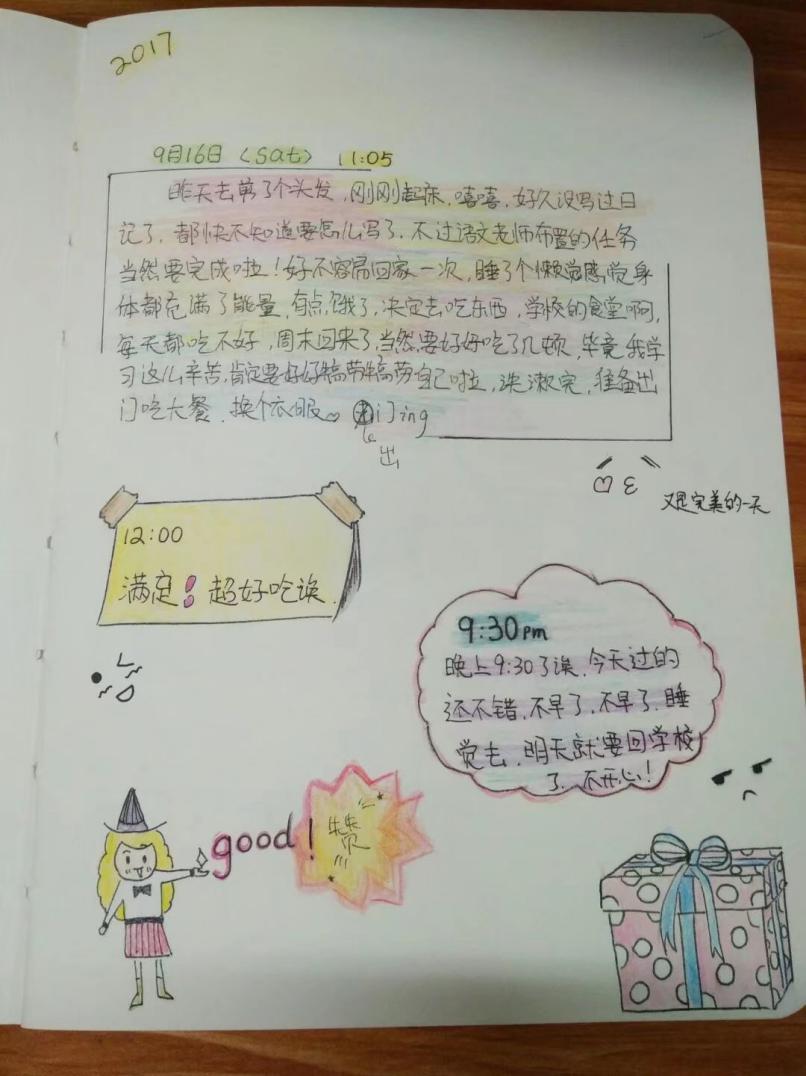 2017
9月16日 (Sat) 11:05
昨天去剪了个头发,刚刚起床,嘻嘻,好久没写过日
记了,都快不知道要怎么写了,不过语文老师布置的任务
当然要完成啦!好不容易回家一次,睡了个懒觉感觉身
体都充满了能量,有点饿了,决定去吃东西,学校的食堂啊,
每天都吃不好,周末回来了,当然要好好吃了几顿,毕竟我学
习这么辛苦,肯定要好好犒劳犒劳自己啦,洗漱完,准备出
门吃大餐,换个衣服 门ing
出
又是完美的一天
12:00
满足!超好吃诶
9:30pm
晚上9:30了诶,今天过的
还不错,不早了,不早了,睡
觉去,明天就要回学校
了,不开心!
good!赞